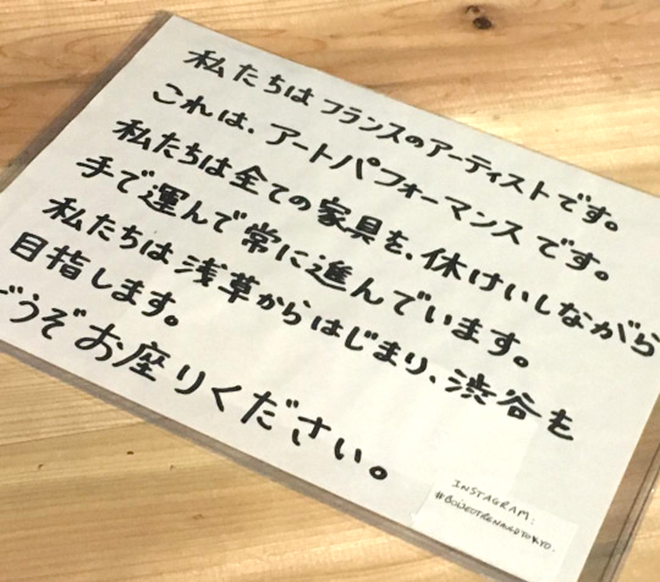 私たちはフランスのアーティストです。
これは、アートパフォーマンスです。
私たちは全ての家具を、休けいしながら
手で運んで常に進んでいます。
私たちは浅草からはじまり、渋谷も
目指します。
どうぞお座りください。
INSTAGRAM: